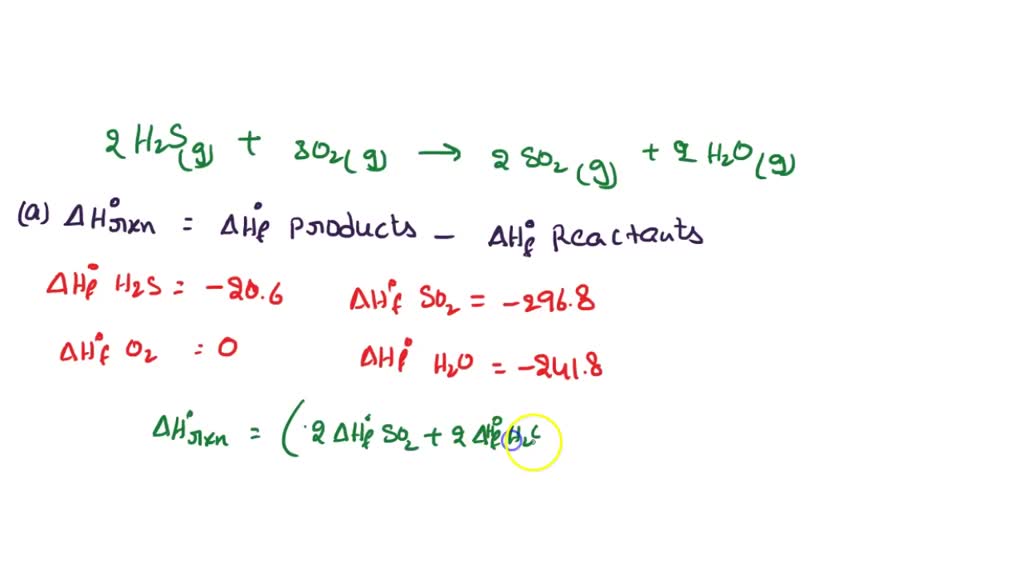 2 H₂S(g) + 3O₂(g) → 2 SO₂(g) + 2 H₂O(g)
(a) ΔH°rxn = ΔH°f Products - ΔH°f Reactants
ΔH°f H₂S = -20.6 ΔH°f SO₂ = -296.8
ΔH°f O₂ = 0 ΔH°f H₂O = -241.8
ΔH°rxn = (2 ΔH°f SO₂ + 2 ΔH°f H₂